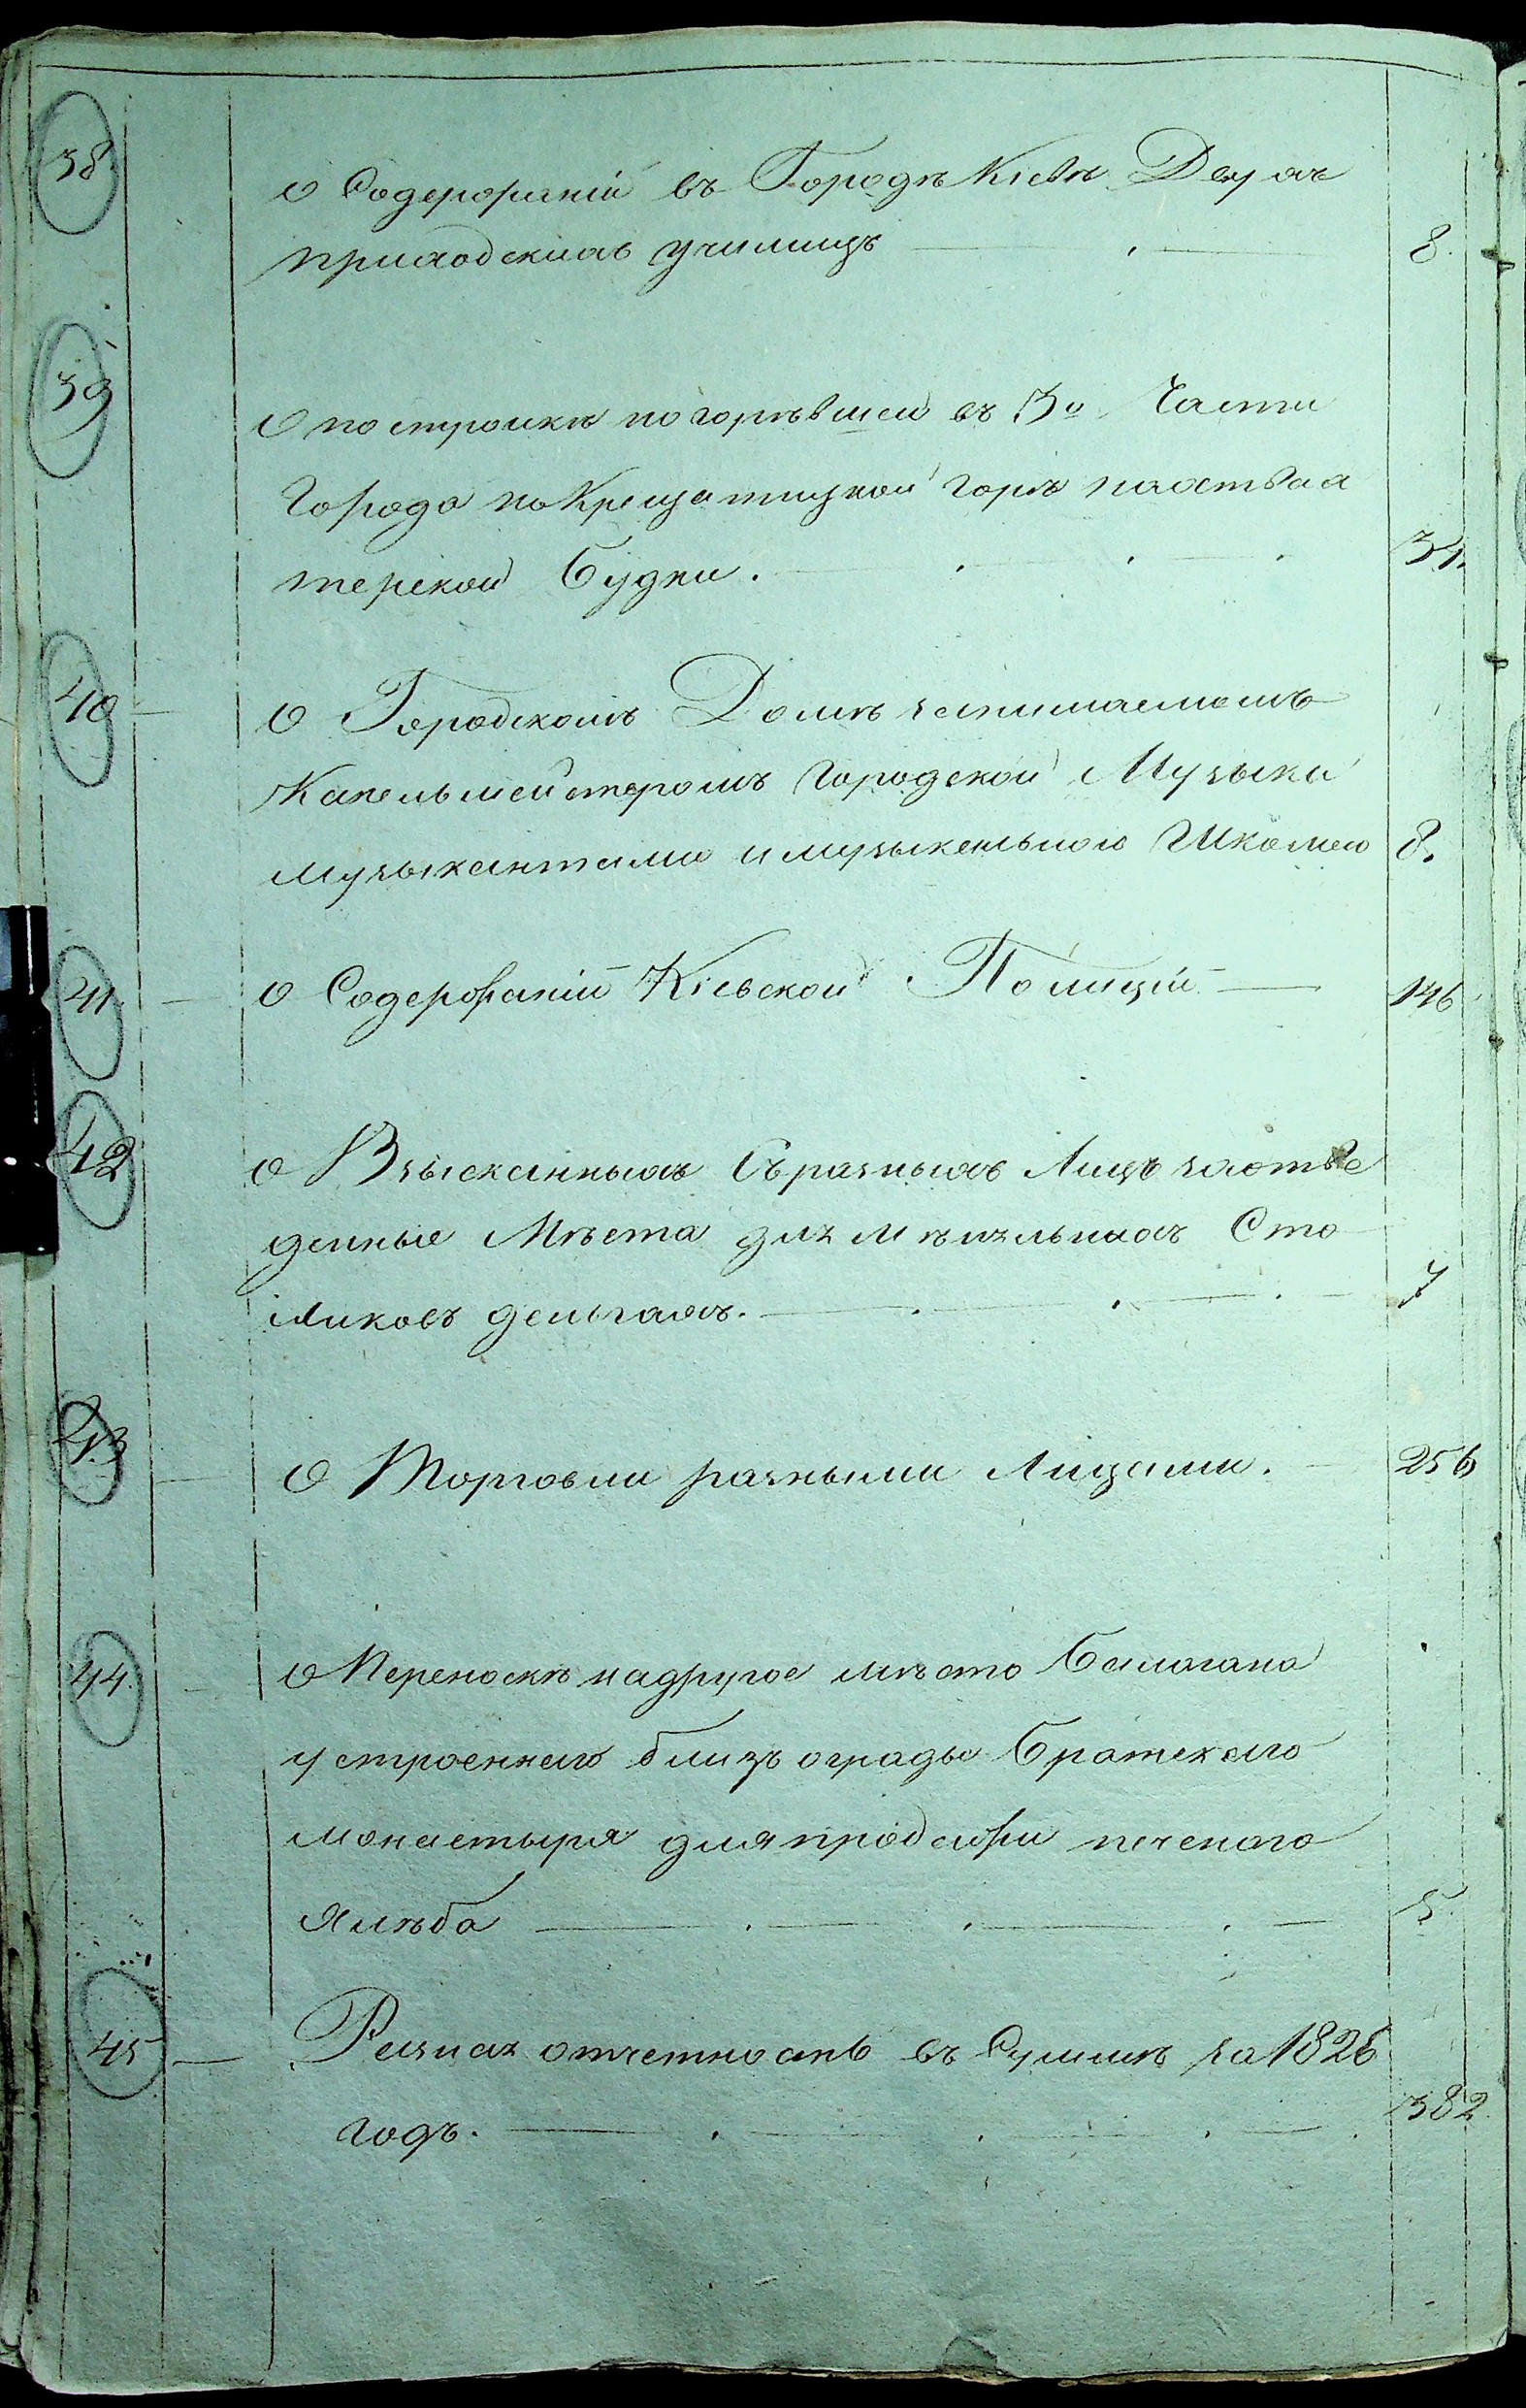 38 О Содержаніи въ Городѣ Кіевѣ Двухъ
приходскихъ училищъ 8.
39 О постройкѣ погорѣвшей въ 3й Части
Города на Крещатицкой горѣ пахтва
терской Будки. 31.
40 О Городскомъ Домѣ занимаемомъ
Капельмейстеромъ Городской Музыки
музыкантами и музыкальною Школою 8.
41 О Содержаніи Кіевской Полиціи 146
42 О Взысканныхъ Съ разныхъ Лицъ за отве
денные Мѣста для мѣняльныхъ Сто
ликовъ деньгахъ. 7
43 О Торговли разными Лицами. 256
44. О Переноскѣ на другое мѣсто Балагана
устроеннаго близъ ограды Братскаго
монастыря для продажи печенаго
хлѣба 5.
45 Разная отчетность въ Суммѣ за 1826
годъ. 382.